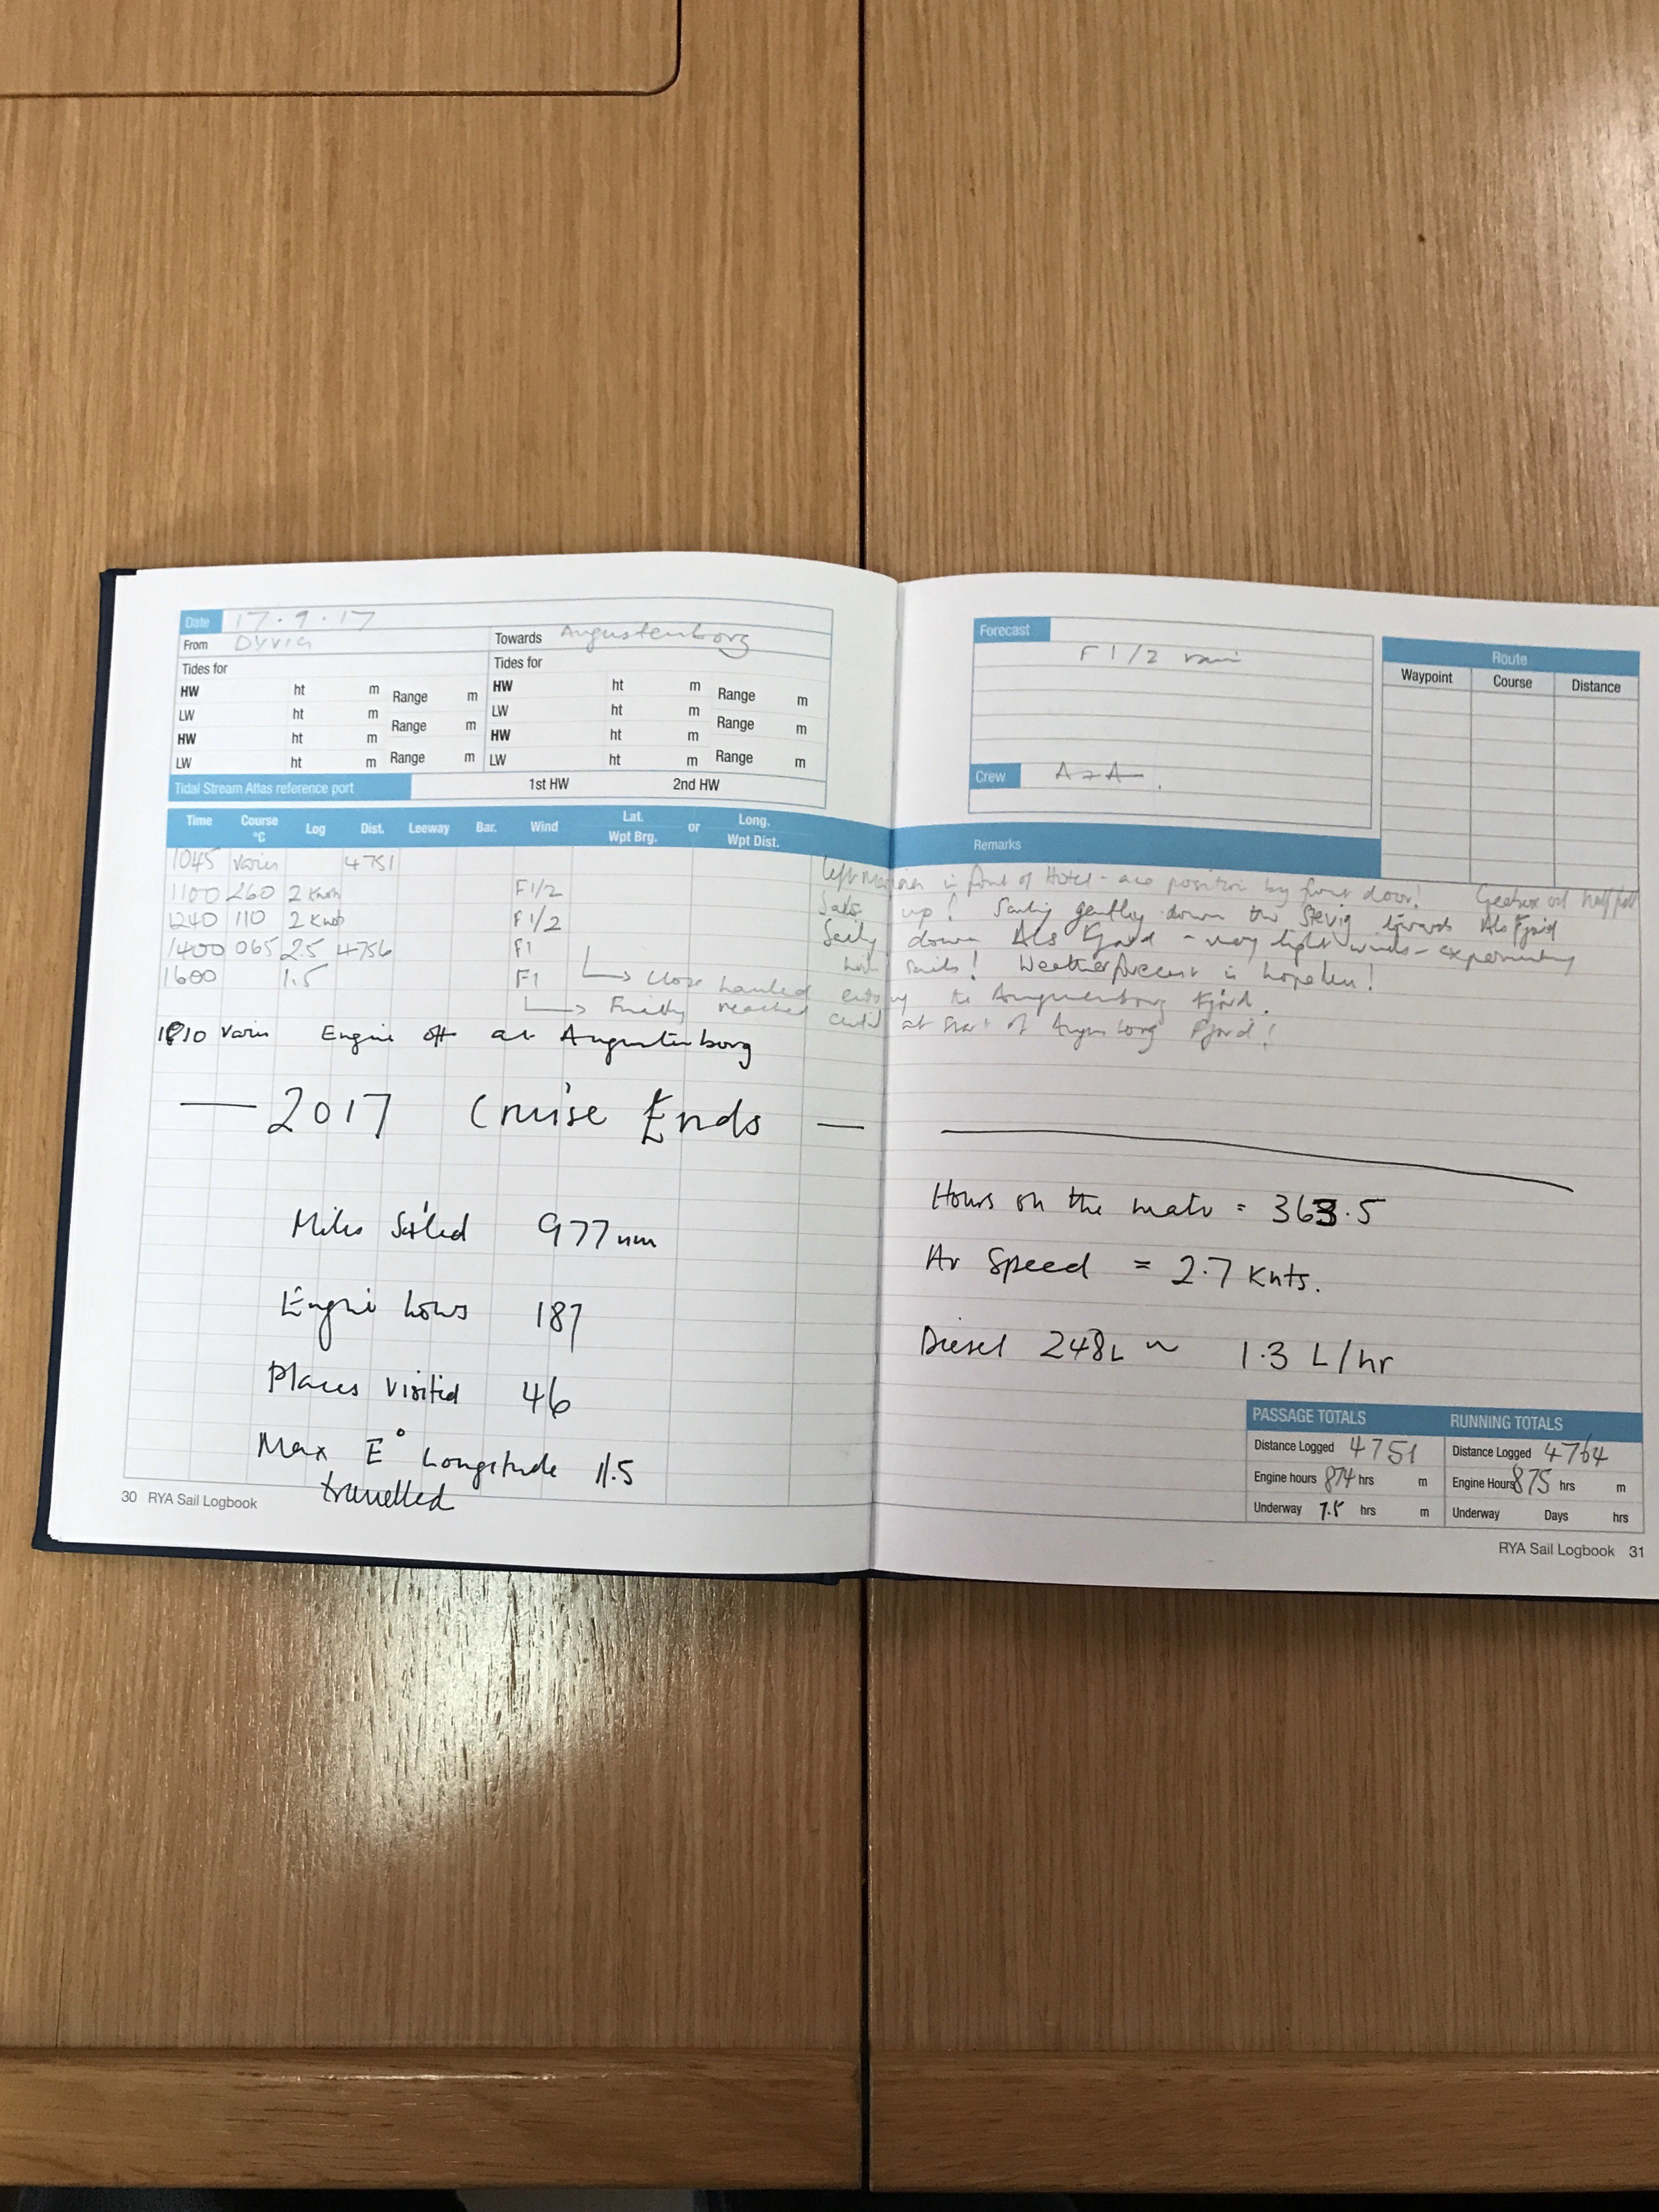 Date 17.9.17
From Dyvig Towards Augustenborg
Tides for Tides for
HW ht m Range m HW ht m Range m
LW ht m LW ht m
HW ht m Range m HW ht m Range m
LW ht m Range m LW ht m Range m
Tidal Stream Atlas reference port 1st HW 2nd HW
Time Course °C Log Dist. Leeway Bar. Wind Lat. or Long.
Wpt Brg. Wpt Dist.
1045 varies 4751
1100 260 2 Knots F1/2
1240 110 2 Knots F1/2
1400 065 2.5 4756 F1
1600 1.5 F1
1810 varies Engine off at Augustenborg
— 2017 Cruise Ends —
Miles Sailed 977nm
Engine hours 187
Places visited 46
Max E° Longitude 11.5
travelled
30 RYA Sail Logbook
Forecast
F1/2 rain
Crew A+A
Route
Waypoint Course Distance
Remarks
in front of Hotel - ace position by front door! Gearbox oil half full
Sails up! Sailing gently down the Stevig towards Als Fjord
Sailing down Als Fjord - very light winds - experimenting
with sails! Weather forecast is hopeless!
Close hauled entry to Augustenborg Fjord.
Finally reached at start of Augustenborg Fjord!
Hours on the water = 363.5
Av Speed = 2.7 Knts.
Diesel 248L ~ 1.3 L/hr
PASSAGE TOTALS RUNNING TOTALS
Distance Logged 4751 Distance Logged 4764
Engine hours 874 hrs m Engine Hours 875 hrs m
Underway 7.5 hrs m Underway Days hrs
RYA Sail Logbook 31